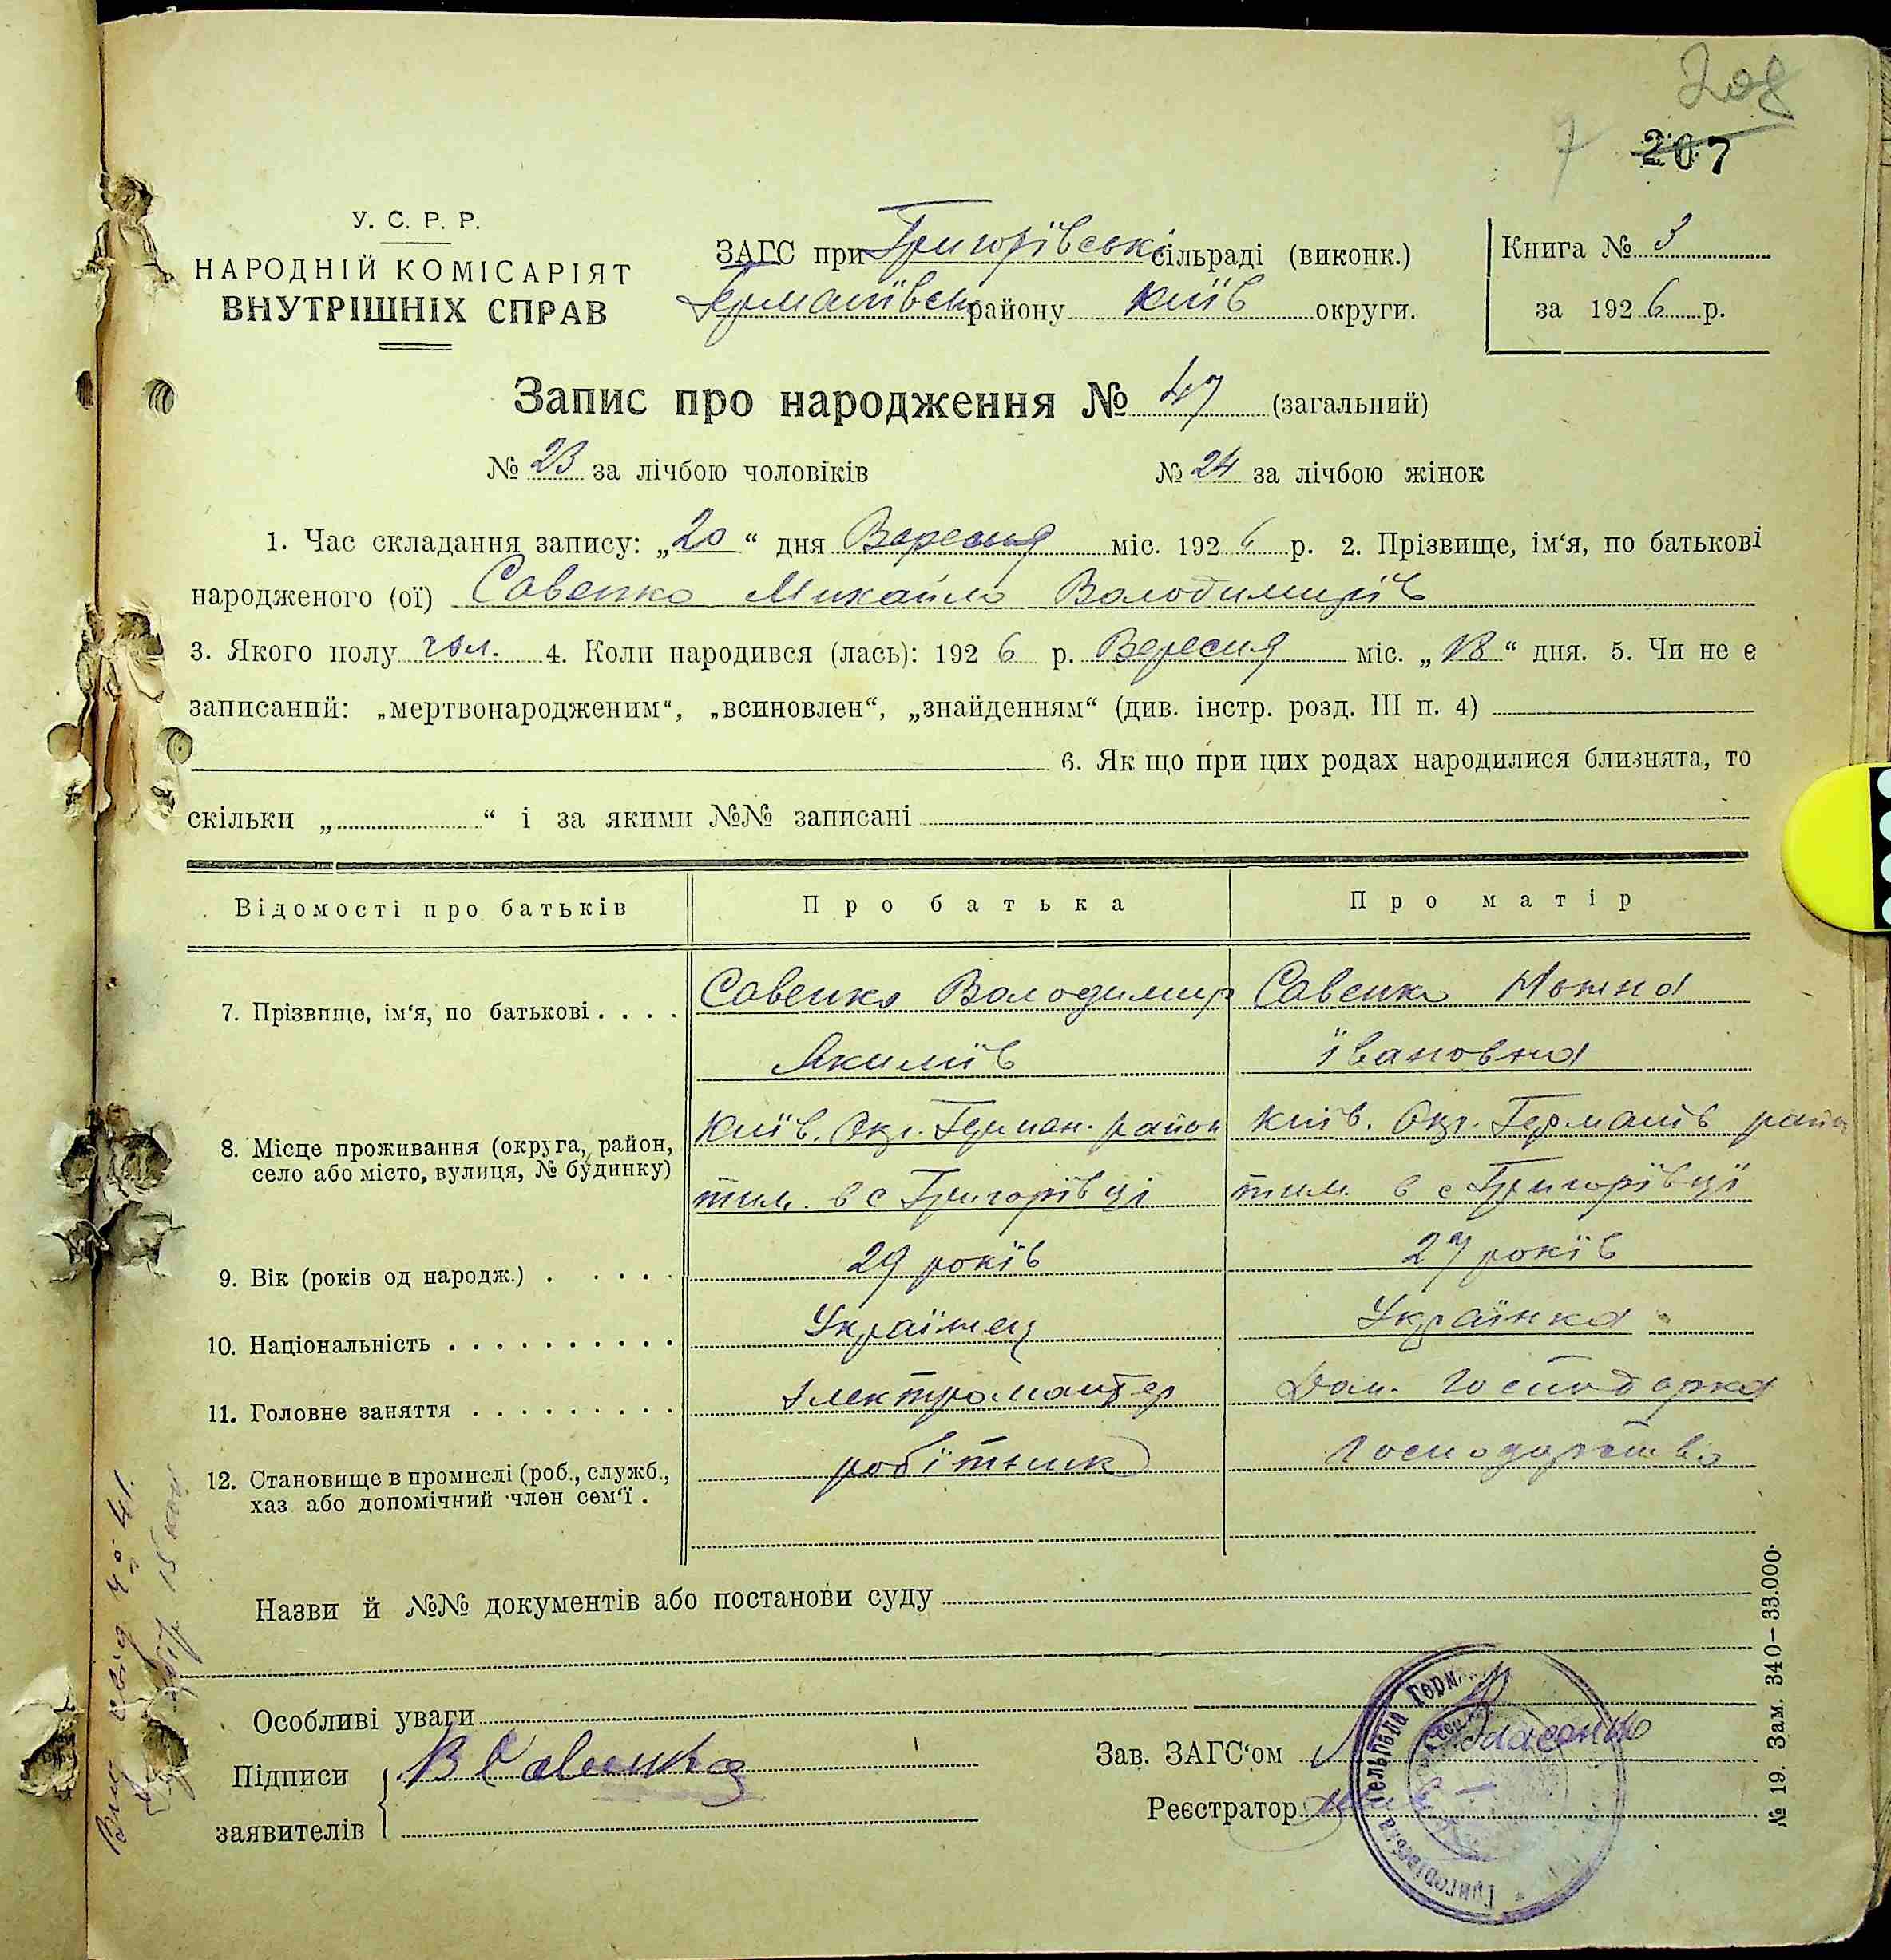 208
7 207
У. С. Р. Р.
НАРОДНІЙ КОМІСАРІЯТ
ВНУТРІШНІХ СПРАВ
ЗАГС при Григорівській сільраді (виконк.)
Германівськ району Київ округи.
Книга № 3
за 1926 р.
Запис про народження № 47 (загальний)
№ 23 за лічбою чоловіків № 24 за лічбою жінок
1. Час складання запису: „20“ дня Вересня міс. 1926 р. 2. Прізвище, ім‘я, по батькові
народженого (ої) Савенко Михайло Володимирів
3. Якого полу чол. 4. Коли народився (лась): 1926 р. Вересня міс. „18“ дня. 5. Чи не є
записаний: „мертвонародженим“, „всиновлен“, „знайденням“ (див. інстр. розд. III п. 4)
6. Як що при цих родах народилися близнята, то
скільки „ “ і за якими №№ записані
Відомості про батьків Про батька Про матір
7. Прізвище, ім‘я, по батькові . . . . Савенко Володимир Савенко
Якимів Івановна
8. Місце проживання (округа, район, Київ. Окр. Герман. район Київ. Окр. Германів район
село або місто, вулиця, № будинку) тим. в с Григорівці тим. в с Григорівці
9. Вік (років од народж.) . . . . . 29 років 27 років
10. Національність . . . . . . . . . . Українец Українка
11. Головне заняття . . . . . . . . . Електромонтер Дом. Господарка
12. Становище в промислі (роб., служб., робітник Господарство
хаз. або допомічний член сем‘ї .
Назви й №№ документів або постанови суду
Особливі уваги
Підписи В Савенко
заявителів
Зав. ЗАГС‘ом
Реєстратор
№ 19. Зам. 340–33.000.